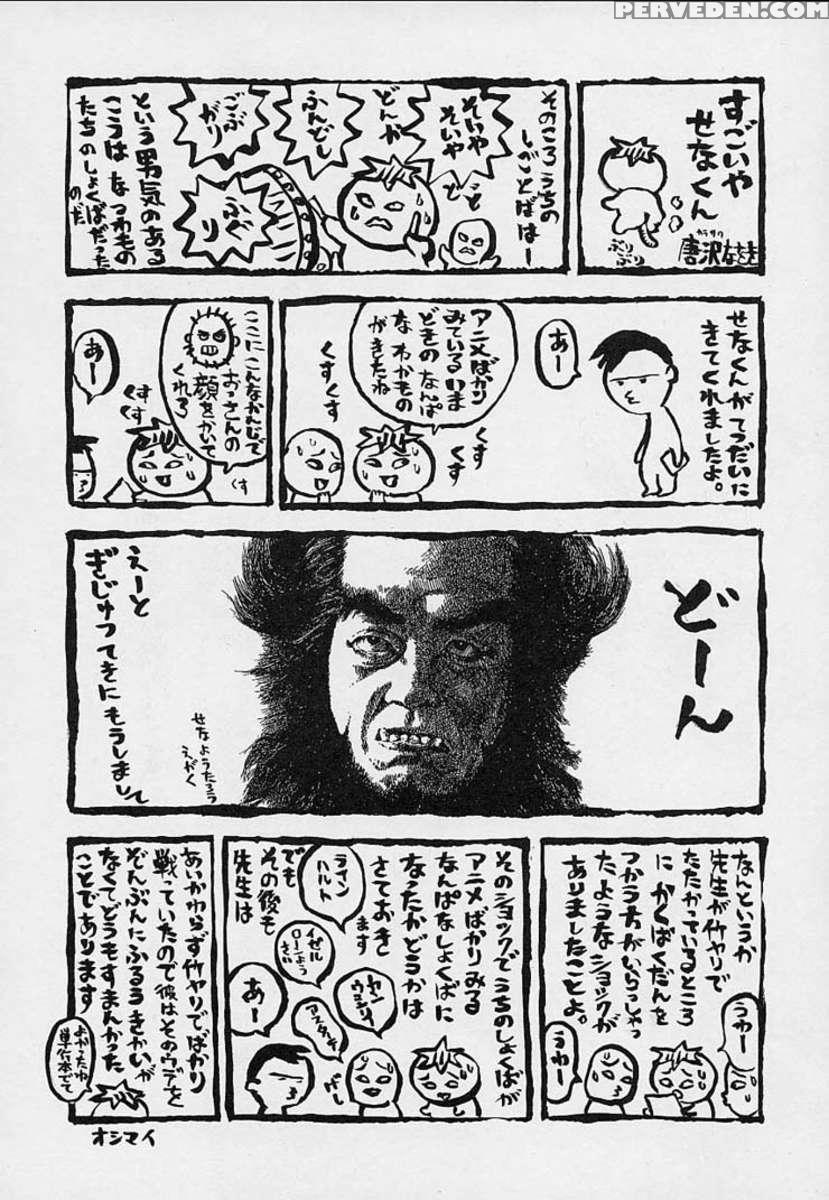 PERVEDEN.COM
すごいや
せなくん
カラサワ
唐沢なをき
ぷりぷり
そのころうちの
しごとばはー
そいや
そいや
と
どんが
ふんどし
ごぶ
がり
ふぐ
り
という男気のある
こうはなつわもの
たちのしょくばだった
のだ
せなくんがてつだいに
きてくれましたよ。
あー
アニメばかり
みているいま
どきのなんぱ
なわかもの
がきたね
くすくす
くすくす
ここにこんなかんじで
おっさんの
顔をかいて
くれろ
くすくす
くす
あー
どーん
せなようたろう
えがく
えーと
ぎじゅつてきにもうしまして
なんというか
先生が竹ヤリで
たたかっているところ
にかくばくだんを
つかう方がいらっしゃっ
たようなショックが
ありましたことよ。
うわー
うわー
そのショックでうちのしょくばが
アニメばかりみる
なんぱなしょくばに
なったかどうかは
さておきし
ます
ライン
ハルト
イゼル
ローンよう
さい
ヤン
ウェンリー
アスターテ
でも
その後も
先生は
あー
あいかわらず竹ヤリでばかり
戦っていたので彼はそのウデを
ぞんぶんにふるうきかいが
なくてどうもすまんかった
ことであります
よかったね
単行本でて
オシマイ